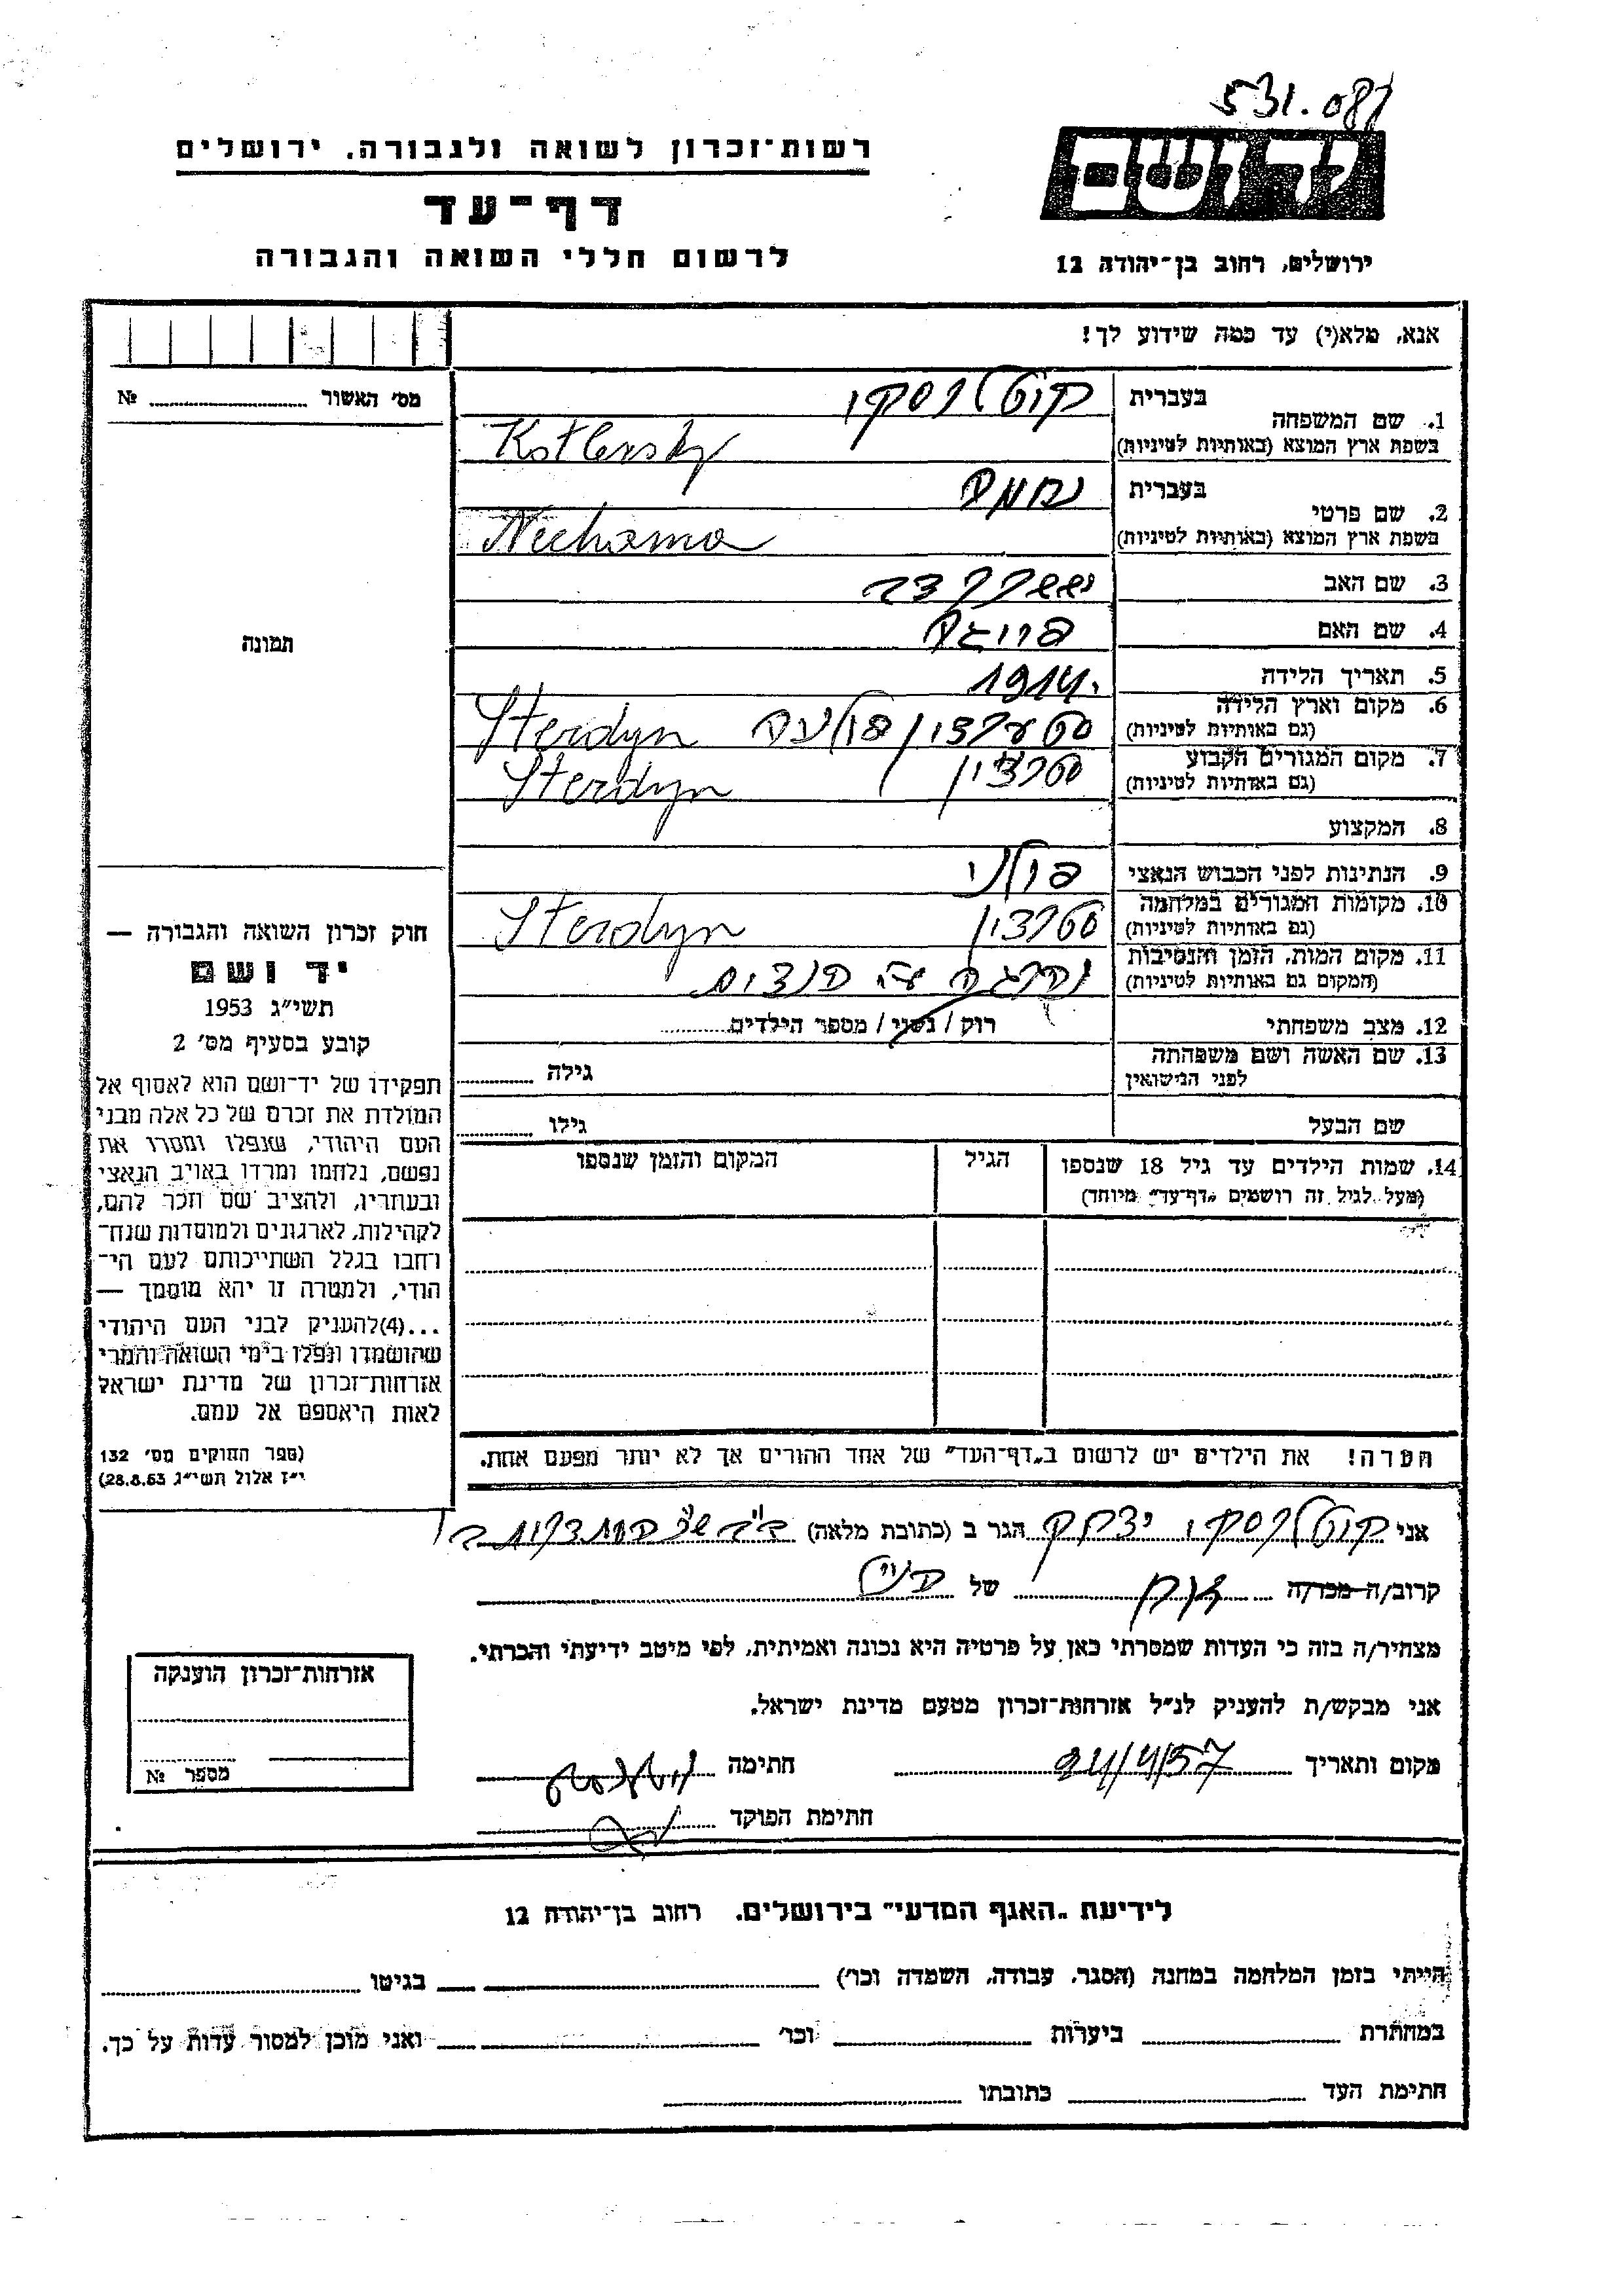 531.081
רשות־זכרון לשואה ולגבורה, ירושלים
דף־עד
לרשום חללי השואה והגבורה
יד ושם
ירושלים, רחוב בן־יהודה 12
אנא, מלא(י) עד כמה שידוע לך!
מס׳ האשור № 
1. שם המשפחה
בעברית קוטלנסקי
בשפת ארץ המוצא (באותיות לטיניות) Kotlensky
2. שם פרטי
בעברית נחמה
בשפת ארץ המוצא (באותיות לטיניות) Nechama
3. שם האב
4. שם האם
5. תאריך הלידה 1914.
6. מקום וארץ הלידה
(גם באותיות לטיניות) סטערדין פולניה Sterdyn
7. מקום המגורים הקבוע
(גם באותיות לטיניות) סטרדין Sterdyn
8. המקצוע
9. הנתינות לפני הכבוש הנאצי פולני
10. מקומות המגורים במלחמה
(גם באותיות לטיניות) סטרדין Sterdyn
11. מקום המות, הזמן והנסיבות
(המקום גם באותיות לטיניות) נהרגה ע״י הנצים
12. מצב משפחתי רוק / נשוי / מספר הילדים
13. שם האשה ושם משפחתה
לפני הנישואין גילה
שם הבעל גילו
14. שמות הילדים עד גיל 18 שנספו
(מעל לגיל זה רושמים „דף־עד״ מיוחד)
הגיל
המקום והזמן שנספו
הערה! את הילדים יש לרשום ב„דף־העד״ של אחד ההורים אך לא יותר מפעם אחת.
תמונה
חוק זכרון השואה והגבורה —
יד ושם
תשי״ג 1953
קובע בסעיף מס׳ 2
תפקידו של יד־ושם הוא לאסוף אל
המולדת את זכרם של כל אלה מבני
העם היהודי, שנפלו ומסרו את
נפשם, נלחמו ומרדו באויב הנאצי
ובעוזריו, ולהציב שם וזכר להם,
לקהילות, לארגונים ולמוסדות שנח־
רחבו בגלל השתייכותם לעם הי־
הודי, ולמטרה זו יהא מוסמך —
...(4)להעניק לבני העם היהודי
שהושמדו ונפלו בימי השואה והמרי
אזרחות־זכרון של מדינת ישראל
לאות היאספם אל עמם.
(ספר החוקים מס׳ 132
י״ז אלול תשי״ג 28.8.53)
אני קוטלנסקי יצחק הגר ב (כתובת מלאה)
קרוב/ה מכר/ה של
מצהיר/ה בזה כי העדות שמסרתי כאן על פרטיה היא נכונה ואמיתית, לפי מיטב ידיעתי והכרתי.
אני מבקש/ת להעניק לנ״ל אזרחות־זכרון מטעם מדינת ישראל.
מקום ותאריך 24/4/57 חתימה
חתימת הפוקד
אזרחות־זכרון הוענקה
מספר №
לידיעת „האגף המדעי״ בירושלים. רחוב בן־יהודה 12
הייתי בזמן המלחמה במחנה (הסגר, עבודה, השמדה וכו׳) בגיטו
במחתרת ביערות וכו׳ ואני מוכן למסור עדות על כך.
חתימת העד כתובתו